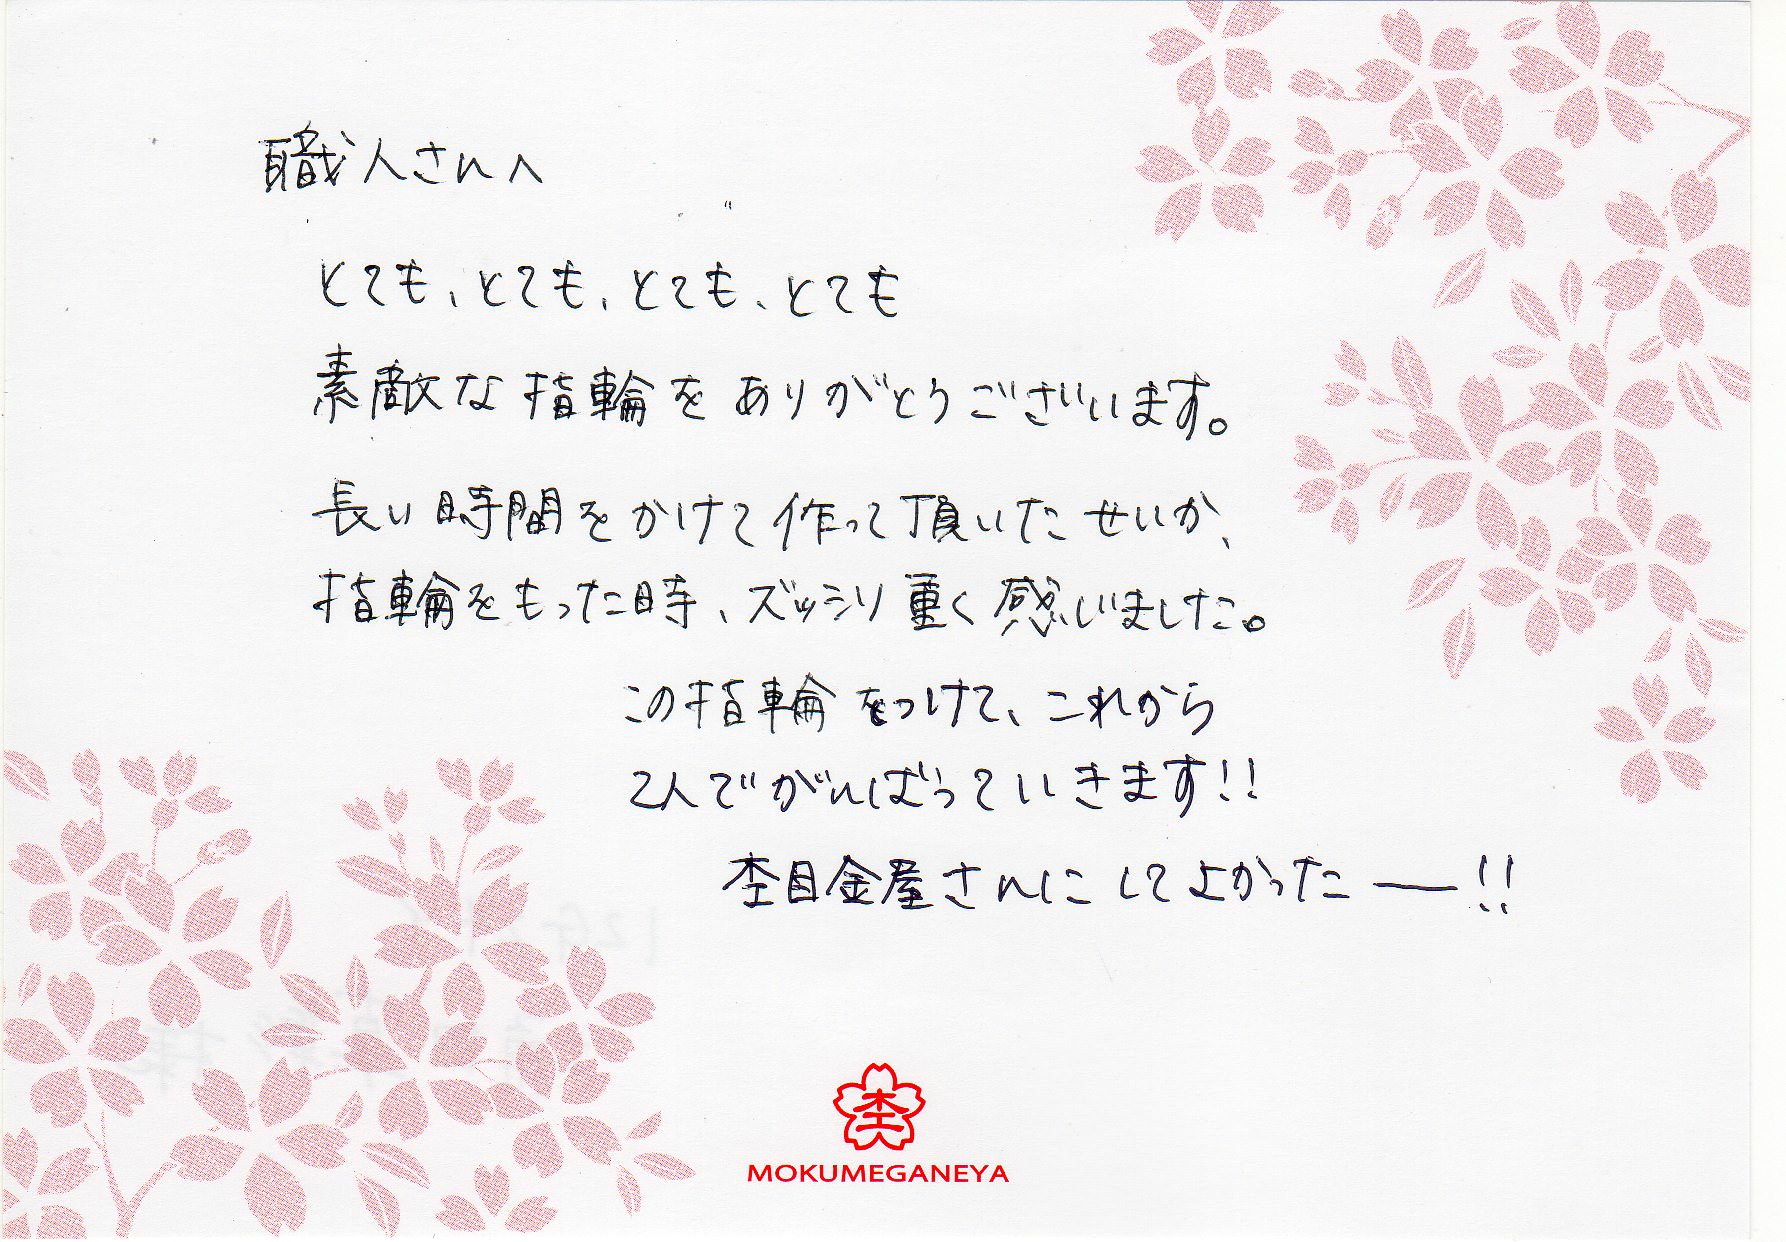 職人さんへ
とても、とても、とても、とても
素敵な指輪をありがとうございます。
長い時間をかけて作って頂いたせいか、
指輪をもった時、ズッシリ重く感じました。
この指輪をつけて、これから
2人でがんばっていきます!!
杢目金屋さんにしてよかったー!!
杢
MOKUMEGANEYA